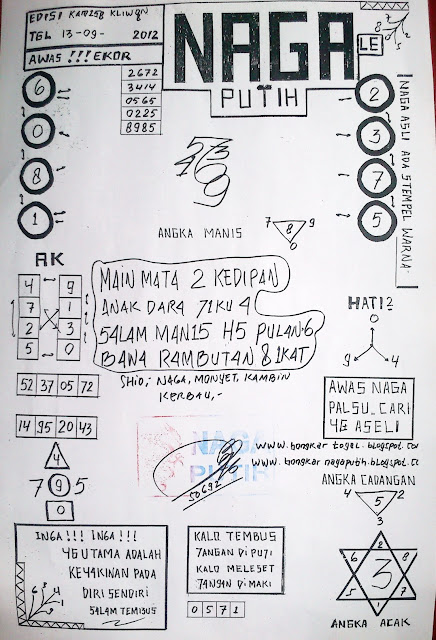 EDISI KAMISB KLIWON
TGL 13-09- 2012
AWAS !!! EKOR
NAGA
PUTIH
LE
2672
3414
0565
0225
8985
6
0
8
1
2
3
7
5
NAGA ASLI ADA STEMPEL WARNA
ANGKA MANIS
7 8 9
0
AK
4 9
7 1
2 3
5 0
MAIN MATA 2 KEDIPAN
ANAK DARA 71KU 4
54LAM MAN15 H5 PULAN6
BAWA RAMBUTAN 8 1KAT
SHIO,; NAGA, MONYET, KAMBIN
KERBAU,-
HATI2
0
9 4
52 37 05 72
14 95 20 43
4
7 9 5
0
AWAS NAGA
PALSU_CARI
4G ASELI
NAGA
PUTIH
50692
www.bongkar togel.blogspot.com
www.bongkar nagaputih.blogspot.c
ANGKA CADANGAN
4 5 2
3
INGA!!! INGA!!!
4G UTAMA ADALAH
KEYAKINAN PADA
DIRI SENDIRI
SALAM TEMBUS
KALO TEMBUS
7ANGAN DI PUJI
KALO MELESET
7ANGAN DI MAKI
0 5 7 1
2
6 8
3
5 7
1
ANGKA ACAK